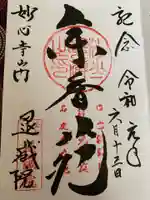 記念 令和元年
六月十三日
余香苑
妙心寺山内
退蔵院